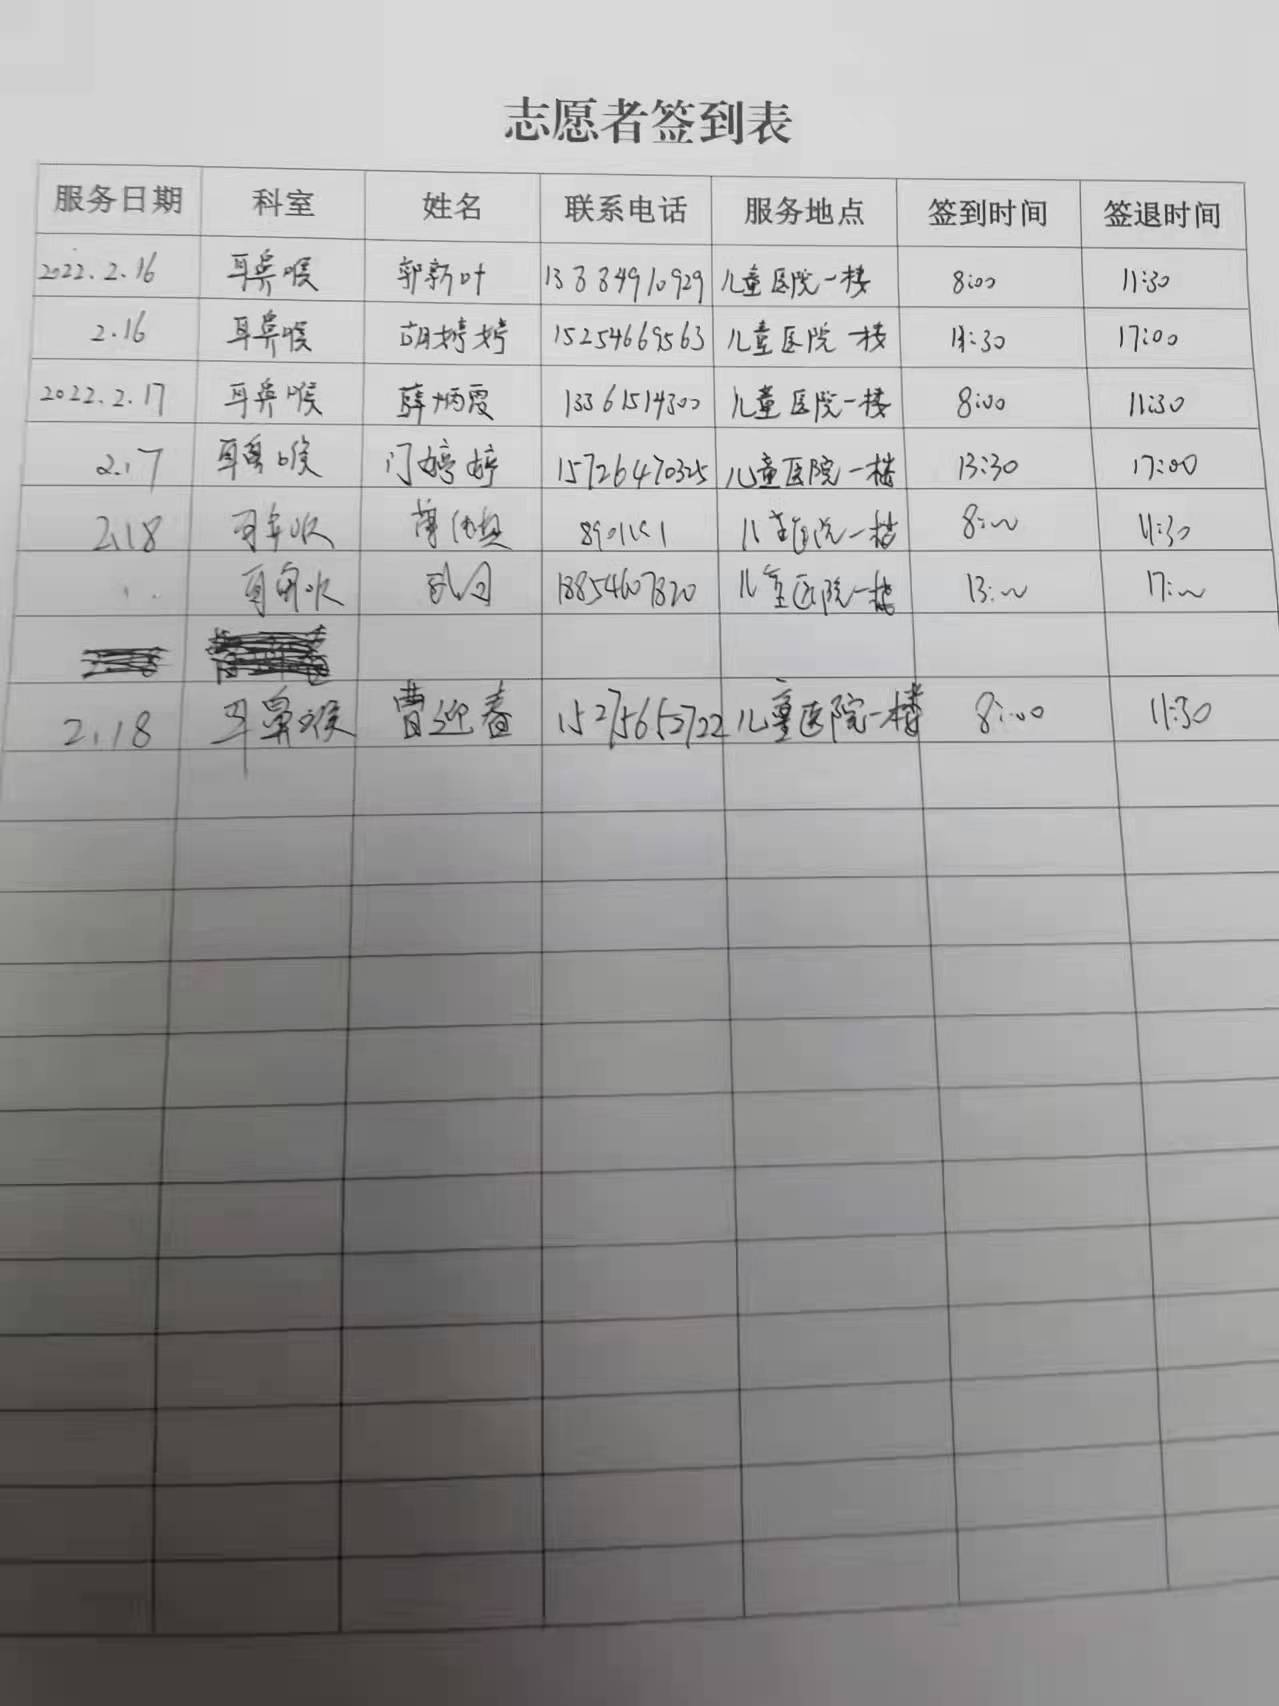 志愿者签到表
服务日期 科室 姓名 联系电话 服务地点 签到时间 签退时间
2022.2.16 耳鼻喉 郭新叶 13884910929 儿童医院一楼 8:00 11:30
2.16 耳鼻喉 胡婷婷 15254669563 儿童医院一楼 11:30 17:00
2022.2.17 耳鼻喉 薛炳霞 13361514300 儿童医院一楼 8:00 11:30
2.17 耳鼻喉 门婷婷 15726470325 儿童医院一楼 13:30 17:00
2.18 儿童医院一楼 8:00 11:30
18854607820 儿童医院一楼 13:00 17:00
2.18 耳鼻喉 曹迎春 15275652722 儿童医院一楼 8:00 11:30